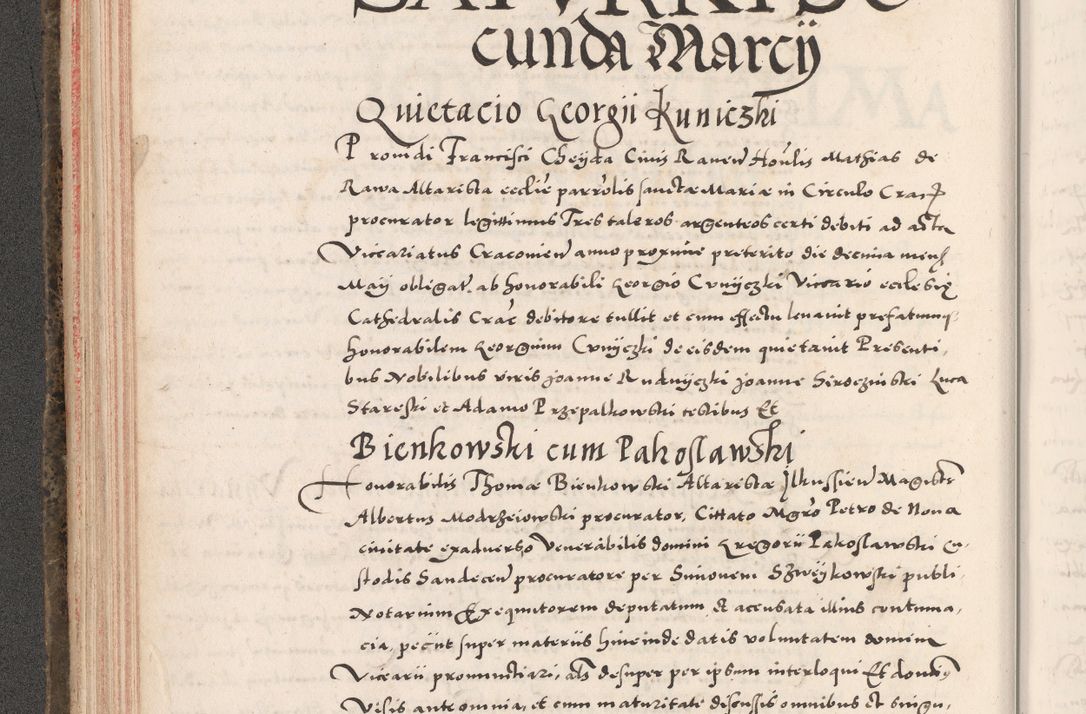 cunda Marcÿ
Quietacio Georgii Kuniczki
Providi Francisci Cheyda Civis Raven Honlis Mathias de
Rawa Altarista ecclie parrolis sanctæ Mariæ in Circulo Crac
procurator legittimus Tres taleros argenteos certi debiti ad acta
Viccariatus Cracovien anno proxime preterito die decima mens
Maij obligat. ab honorabili Georgio Cunÿczki Viccario ecclesie
Cathedralis Crac debitore tullit et cum effectu levavit prefatumq
honorabilem Georgium Cunÿczki de eisdem quietavit Presenti,
bus Nobilibus viris Joanne Rudnÿczki Joanne Siroczinski Luca
Stareski et Adamo Przepalkowski testibus Et
Bienkowski cum Pakoslawski
Honorabilis Thomæ Bienkowski Altaristæ Ilkussien Magister
Albertus Modrzeiowski procurator, Cittato Mgro Petro de Nova
civitate exadverso Venerabilis domini Gregorii Pakoslawski Cu-
stodis Sandecen procuratore per Simonem Szweykowski publi,
Notarium Exequutorem deputatum et accusata illius contuma,
cia, peciit super materiis hincinde datis voluntatem domini
Vicearii pronunctiari, als desuper per ipsum interloqui Et domin9
Visis ante omnia, et cum maturitate discussis omnibus et singu,